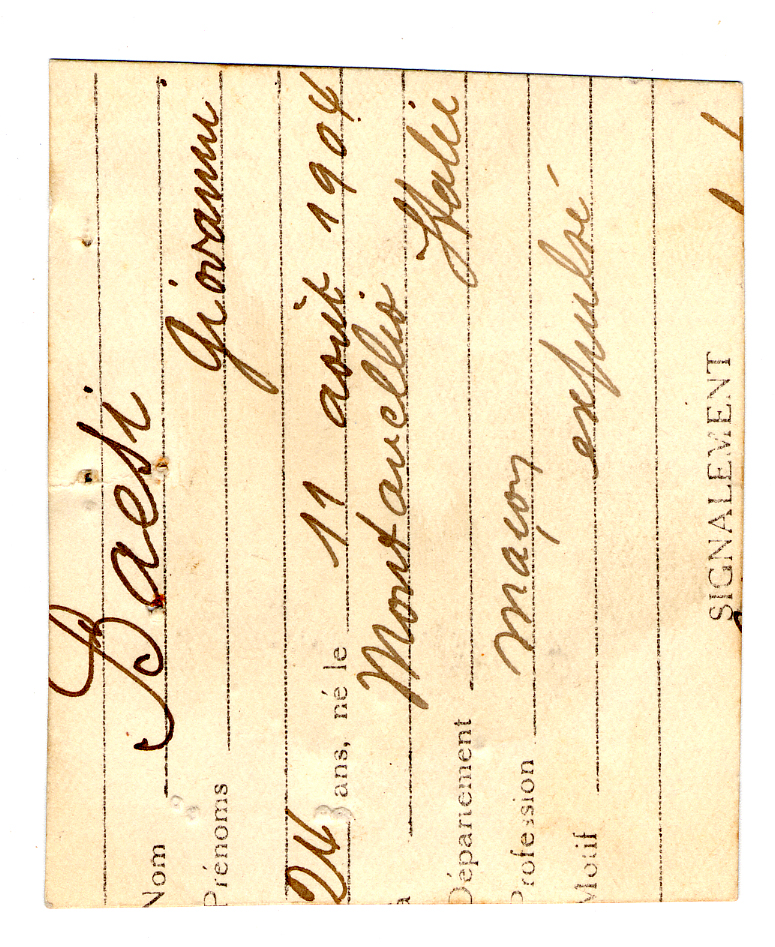 Nom Baesi
Prénoms Giovanni
24 ans, né le 11 août 1904
à Montavellio Italie
Département
Profession maçon
Motif expulsé
SIGNALEMENT